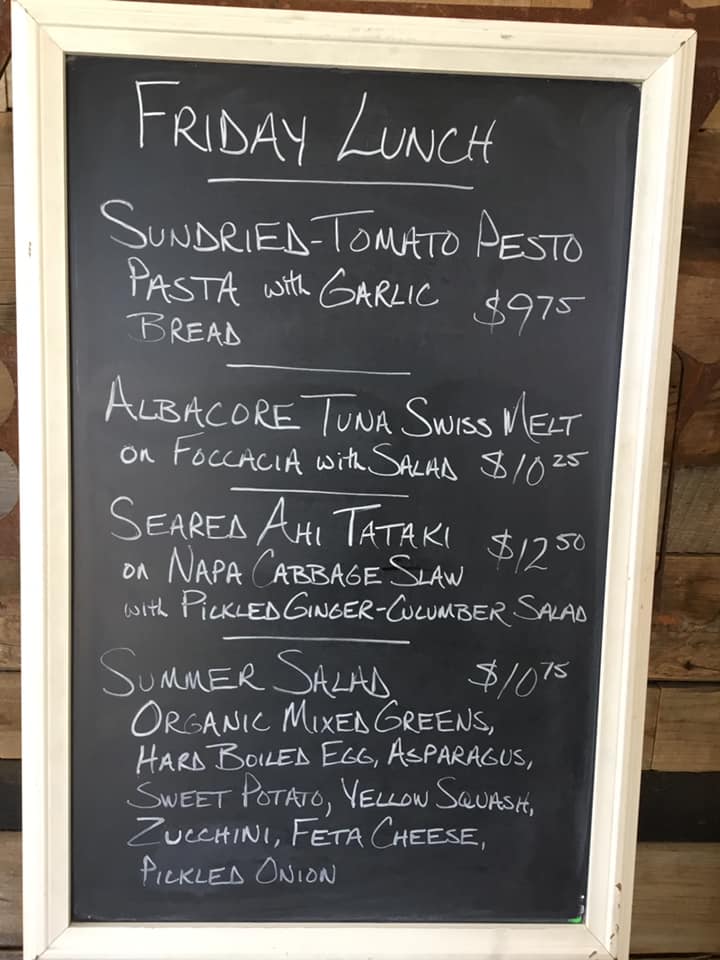 FRIDAY LUNCH
SUNDRIED-TOMATO PESTO
PASTA with GARLIC $9 75
BREAD
ALBACORE TUNA SWISS MELT
on FOCCACIA with SALAD $10 25
SEARED AHI TATAKI $12 50
ON NAPA CABBAGE SLAW
with PICKLED GINGER-CUCUMBER SALAD
SUMMER SALAD $10 75
ORGANIC MIXED GREENS,
HARD BOILED EGG, ASPARAGUS,
SWEET POTATO, YELLOW SQUASH,
ZUCCHINI, FETA CHEESE,
PICKLED ONION